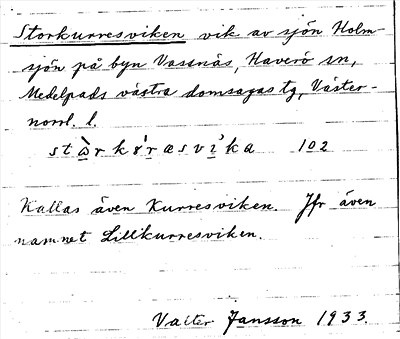 Storkurresviken vik av sjön Holm-
sjön på byn Vassnäs, Haverö sn,
Medelpads västra domsagas tg, Väster-
norrl. l.
kurræsvi'ka 102
Kallas även Kurresviken. Jfr även
namnet Lillkurresviken.
Valter Jansson 1933.